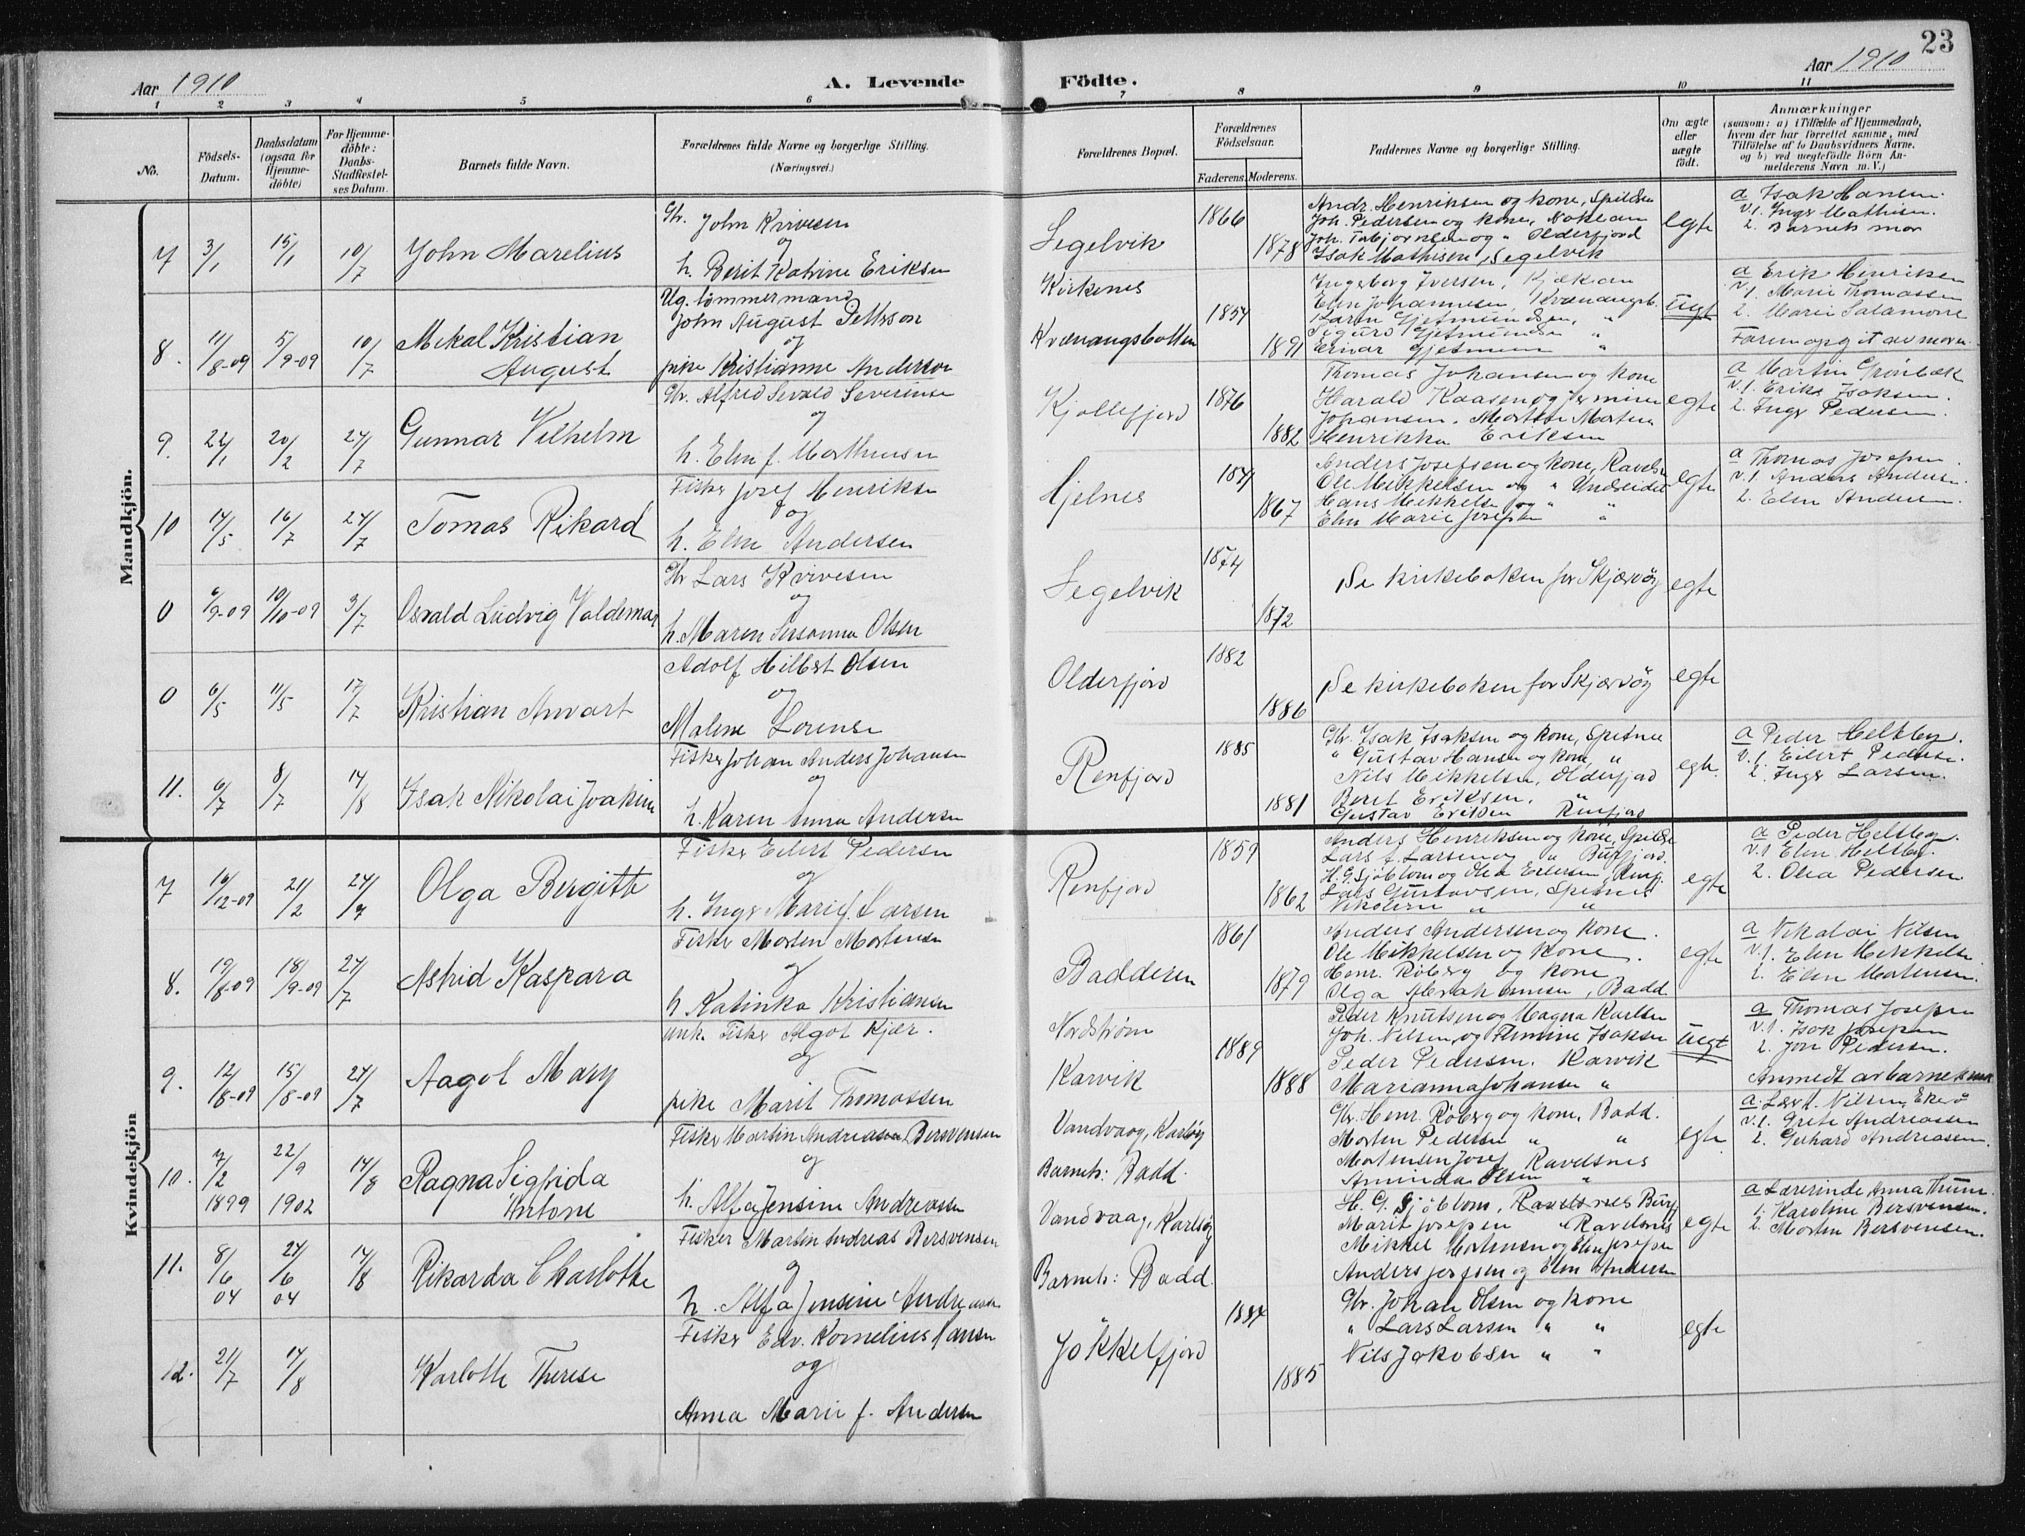 23
Aar 1910
A. Levende
Födte.
Aar 1910
1 2 3 4 5 6 7 8 9 10 11
No.
Födsels-Datum.
Daabsdatum (ogsaa for Hjemme-döbte)
For Hjemme-döbte: Daabs-Stadfæstel-ses Datum.
Barnets fulde Navn.
Forældrenes fulde Navne og borgerlige Stilling. (Næringsvei.)
Forældrenes Bopæl.
Forældrenes Födselsaar.
Faderens. Moderens.
Faddernes Navne og borgerlige Stilling.
Om ægte eller uægte födt.
Anmærkninger
(saasom: a) i Tilfælde af Hjemmedaab, hvem der har forrettet samme, med Tilföielse af to Daabsvidners Navne, og b) ved uægtefödte Börn An-melderens Navn m. V.)
Mandkjön.
7 3/1 15/1 10/7 John Marelius
Gbr. John Kvivesen
og
h. Berit Katrine Eriksen
Segelvik
1866
1878
Andr. Henriksen og kone, Spildra
Joh. Pedersen og kone,
Joh. Torbjørnsen og " Olderfjord
Isak Mathisen, Segelvik
egte
a Isak Hansen.
v.1. Inga Mathisen.
2. Barnets mor
8. 11/8-09 5/9-09 10/7 Mekal Kristian August
Ug. tømmermand
John August Pettsson
og
pike Kristianne Anderson
Kirkenes
Kvænangsbotten
1854
1891
Ingeborg Iversen,
Elen Johannesen, Kvænangsb.
Karen Gjetmundsen, "
Sigurd Gjetmundsen "
Einar Gjetmun "
uegt
a Erik Henriksen
v.1. Marie Thomassen
2. Marie Salamone
Faren opgit av moren
9. 22/1 20/2 27/7 Gunnar Vilhelm
Gbr. Alfred Sevald Severinse
og
h. Elen f. Mathisen
Kjollefjord
1876
1882
Thomas Johansen og kone
Harald Kaasen og Jermine
Johansen, Morten Marten
Henrikka Eriksen
egte
a Martin Grønbæk
v.1. Erik Isaksen.
2. Inga Pedersen.
10 14/5 16/7 27/7 Tomas Rikard
Fisker Josef Henriksen
og
h. Elen Andersen
Hjelnes
1871
1867
Anders Josefsen og kone, Ravelsn
Ole Mikkelsen og " Undereidet
Hans Mikkelsen og " "
Elen Marie Josefsen "
egte
a Thomas Josepsen.
v.1 Anders Andersen.
2. Elen Andersen.
0 6/9-09 10/10-09 3/7 Osvald Ludvig Valdemar
Gbr Lars Kvivesen
og
h. Maren Susanna Olsen
Segelvik
1874
1872
Se kirkeboken for Skjærvøy
egte
0 6/5 11/5 17/7 Kristian Anvart
Adolf Hilbert Olsen
og
Malene Lorense
Olderfjord
1882
1886
Se kirkeboken for Skjærvøy
egte
11. 6/7 8/7 14/8 Isak Nikolai Joakim
Fisker Johan Anders Johansen
og
h. Karen Anna Andersen
Renfjord
1885
1881
Gbr. Isak Isaksen og kone, Spitnes
" Gustav Hansen og kone, "
Nils Mikkelsen, Olderfjord
Berit Eriksen, "
Gustav Eriksen Renfjord
egte.
a Peder Helsby.
v.1 Eilert Pedersen.
2. Inga Larsen.
Kvindekjön
7 16/12-09 21/2 24/7 Olga Bergitte
Fisker Eilert Pedersen
og
h. Inga Marie f. Larsen
Renfjord
1859
1862
Anders Henriksen og kone, Spildre
Lars f. Larsen og " Burfjord.
H. G. Sjøblom og Olea Eilersen,
Lars Gustavsen, Spitnes
Nikoline " "
egte
a Peder Helsby.
v.1 Elen Helsby.
2. Olea Pedersen
8. 19/8-09 18/9-09 27/7 Astrid Kaspara
Fisker Morten Mortensen
og
h Katinka Kristiansen
Badderen
1861
1879
Anders Andersen og kone.
Ole Mikkelsen og kone.
Henr. Røberg og kone
Olga Abrahamsen, Badd
egte
a Nikolai Nilsen
v.1. Elen Mikkelse
2. Elen Mortensen
9. 12/8-09 15/8-09 27/7 Aagot Mary
unk. Fisker Algot Kjær.
og
pike Marit Thomassen
Nordstrøm
Karvik
1889
1888
Peder Knutsen og Magna Karlsen
Joh. Nilsen og Flemine Isaksen
Peder Pedersen. Karvik
Marianna Johansen "
uegt
a Thomas Josepsen
v.1. Isak Josepsen
2. Jon Pedersen.
Anmeldt av barnets mor
10. 7/2 1899 22/9 1902 14/8 Ragna Sigfrida Antone
Fisker Martin Andreassen Bersvensen
og
h. Alfa Jensine Andreassen
Vandvaag, Karlsøy
Barnets: Badd.
Gbr. Henr. Røberg og kone, Badd.
Morten Pedersen " "
Mortensen Josef Ravelsnes
Aminda Olsen "
egte.
a. Lærer A. Nilsen, Ekrø
v.1. Grete Andreassen
2. Gerhard Andreassen.
11. 8/6 04 24/6 04 14/8 Rikarda Charlotte
Fisker Martin Andreas Bersvensen
og
h. Alfa Jensine Andreassen
Vandvaag, Karlsøy
Barnets: Badd.
H. G. Sjøblom, Burfj
Marit Josepsen " Ravelsnes
Mikkel Mortensen og Elen Josepsen
Anders Josefsen og Elen Andersen
egte
a Lærerinde Anna Thum.
1. Karoline Bersvensen.
2. Morten Bersvensen.
12. 21/7 14/8 Karlotte Therese
Fisker Edv. Kornelius Hansen
og
Anna Marie f. Andersen
Jökkelfjord
1884
1885
Gbr. Johan Olsen og kone
" Lars Larsen " "
Nils Jakobsen " "
egte